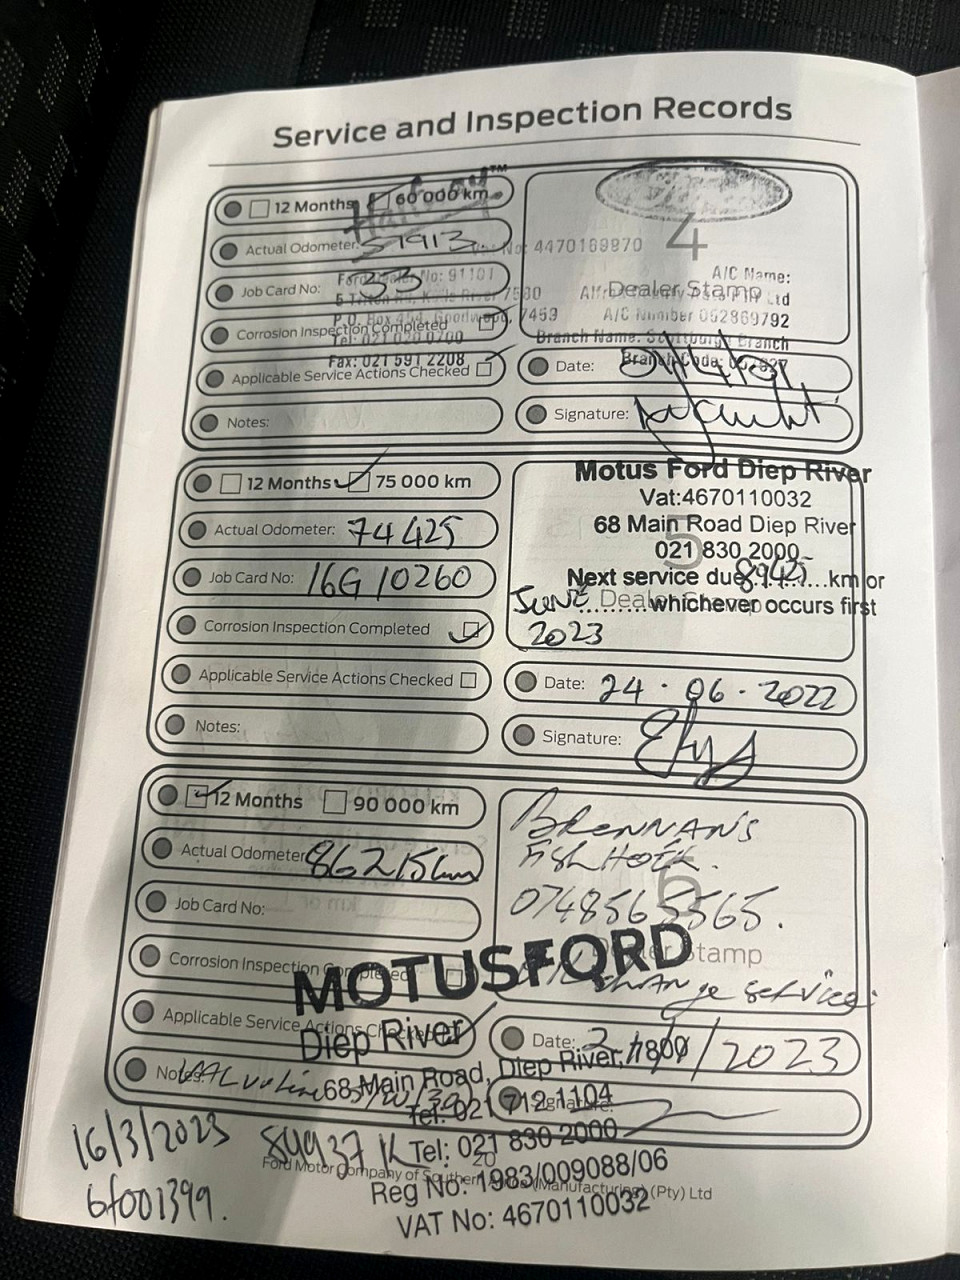 Service and Inspection Records
12 Months
60 000 km
4
Actual Odometer: 51913
No: 4470169970
Job Card No: 33
No: 91101
A/C Name:
Dealer Stamp
Ltd
A/C Number 062869792
Corrosion Inspection Completed
Branch
Fax: 021 591 2208
Applicable Service Actions Checked
Date:
Notes:
Signature:
12 Months
75 000 km
Motus Ford Diep River
Vat:4670110032
Actual Odometer: 74425
68 Main Road Diep River
5
021 830 2000
Job Card No: 16G10260
Next service due 89425 km or
June ......... whichever occurs first
Dealer Stamp
2023
Corrosion Inspection Completed
Applicable Service Actions Checked
Date: 24.06.2022
Notes:
Signature:
12 Months
90 000 km
BRENNAN'S
Fish Hoek.
6
0748565565.
Actual Odometer: 86215km
Job Card No:
Stamp
change service
Corrosion Inspection Completed
MOTUSFORD
Applicable Service Actions
Diep River
Date: /2023
68 Main Road, Diep River, 7800
Notes:
Tel: 021 712 1104
Signature:
16/3/2023
84937 K
Tel: 021 830 2000
20
Ford Motor Company of Southern Africa (Manufacturing) (Pty) Ltd
6f001399.
Reg No: 1983/009088/06
VAT No: 4670110032